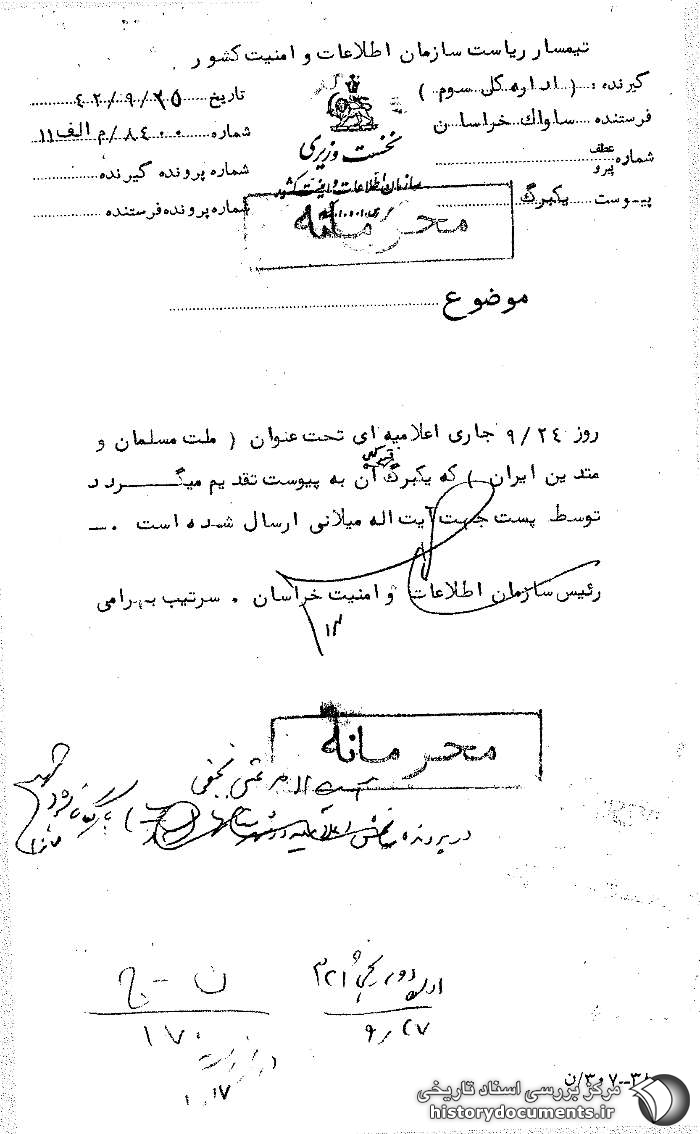 تیمسار ریاست سازمان اطلاعات و امنیت کشور
گیرنده: (اداره کل سوم)
فرستنده ساواک خراسان
شماره عطف پیرو
پیوست یکبرگ
نخست وزیری
سازمان اطلاعات و امنیت کشور
تاریخ ۴۲/۹/۲۵
شماره ۸۴۰۰/م الف ۱۱
شماره پرونده گیرنده
شماره پرونده فرستنده
محرمانه
موضوع
روز ۹/۲۴ جاری اعلامیه ای تحت عنوان ( ملت مسلمان و
متدین ایران ) که یکبرگ آن به پیوست تقدیم میگردد
توسط پست جهت آیت اله میلانی ارسال شده است .
رئیس سازمان اطلاعات و امنیت خراسان . سرتیپ بهرامی
۱۳
محرمانه
آیت اله مرعشی نجفی
در پرونده
۳۲۱
۹/۲۷
ن - ج
۱۷۰
۱۰/۱۷
۳۰۷/ن
مرکز بررسی اسناد تاریخی
historydocuments.ir